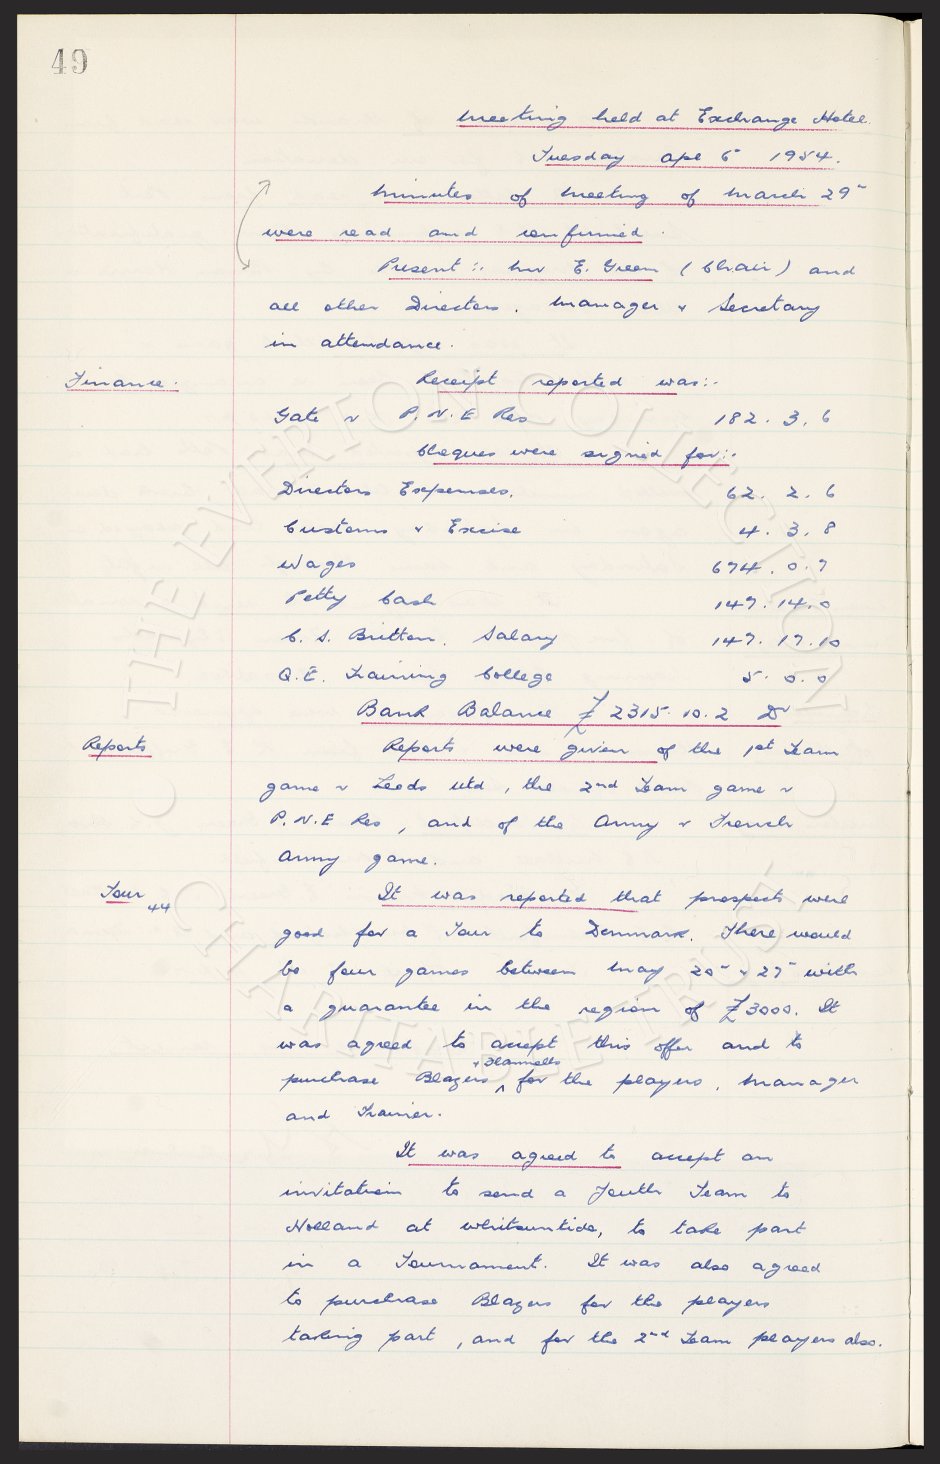 49
Meeting held at Exchange Hotel.
Tuesday Apl 6" 1954.
Minutes of Meeting of March 29"
were read and confirmed.
Present :. Mr E. Green (Chair) and
all other Directors. Manager & Secretary
in attendance.
Finance.
Receipt reported was:-
Gate v P.N.E Res 182. 3. 6
Cheques were signed for:-
Directors Expenses. 62. 2. 6
Customs & Excise 4. 3. 8
Wages 674. 0. 7
Petty Cash 147. 14. 0
C. S. Britton. Salary 147. 17. 10
Q.E. Training College 5. 0. 0
Bank Balance £2315. 10. 2 Dr
Reports
Reports were given of the 1st Team
game v Leeds Utd, the 2nd Team game v
P.N.E Res, and of the Army v French
Army game.
Tour 44
It was reported that prospects were
good for a Tour to Denmark. There would
be four games between May 20" & 27" with
a guarantee in the region of £3000. It
was agreed to accept this offer and to
& Flannels
purchase Blazers ^ for the players, Manager
and Trainer.
It was agreed to accept an
invitation to send a Youth Team to
Holland at Whitsuntide, to take part
in a Tournament. It was also agreed
to purchase Blazers for the players
taking part, and for the 2nd Team players also.
© THE EVERTON COLLECTION ©
CHARITABLE TRUST